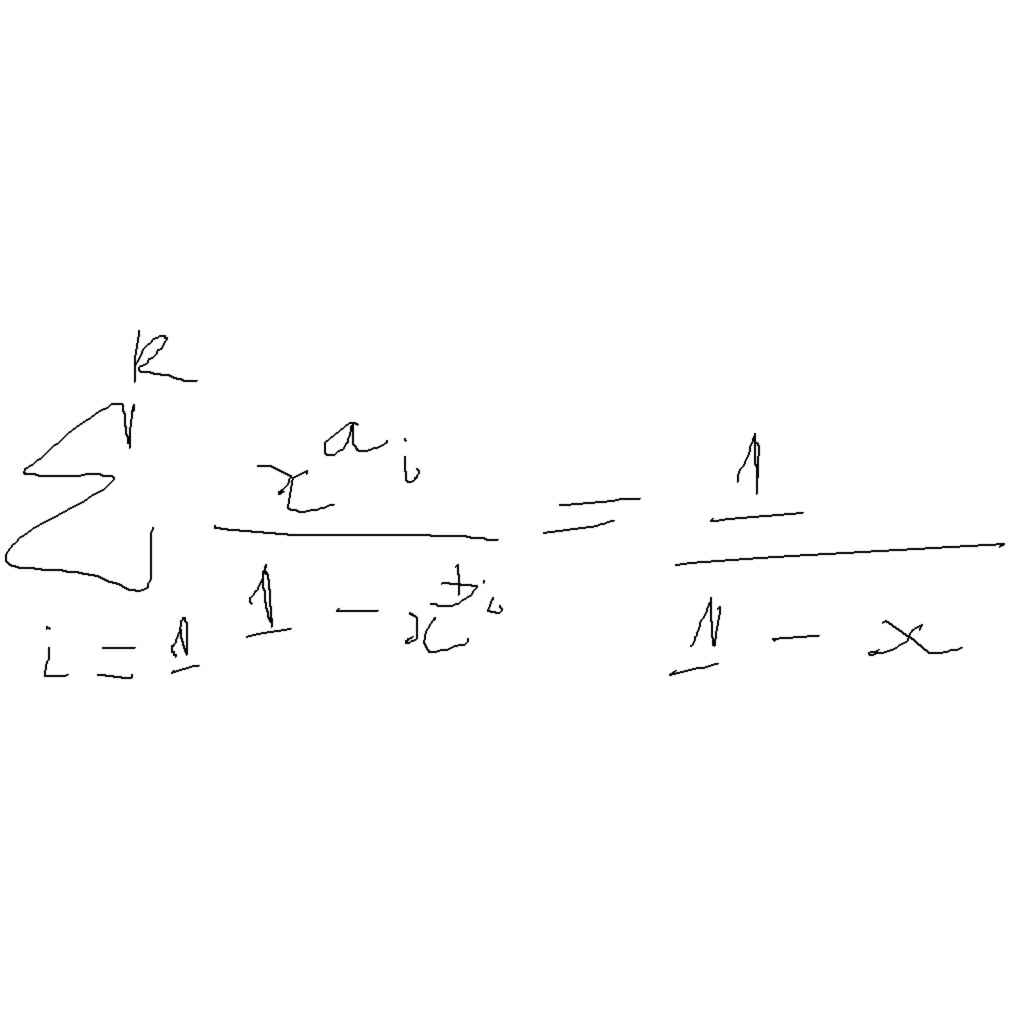 \sum_{i=1}^{k} \frac{x^{a_i}}{1 - x^{t_i}} = \frac{1}{1 - x}